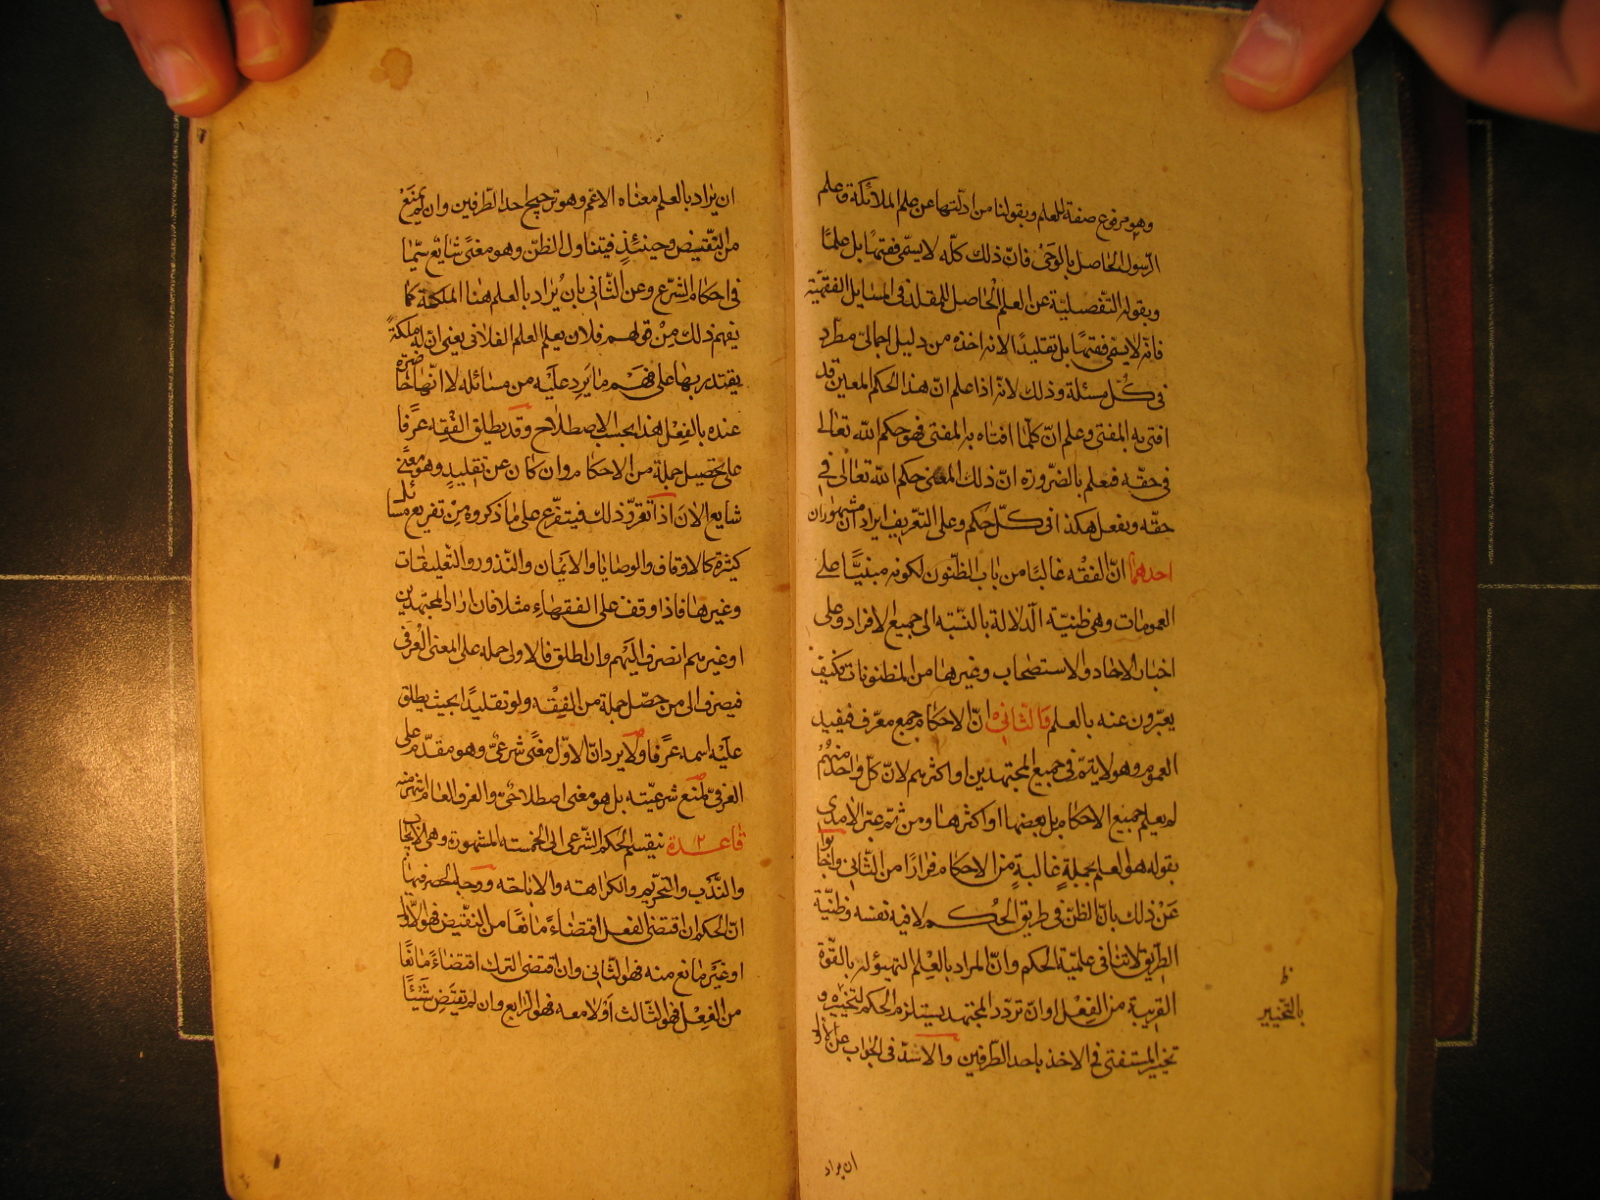 وهو مرفوع صفة للعلم وبقولنا من ادلتها عن علم الملائكة وعلم
الرسول الحاصل بالوحى فانّ ذلك كلّه لا يسمّى فقهًا بل علمًا
وبقوله التّفصيليّة عن العلم الحاصل للمقلد فى المسايل الفقهيّة
فانّه لا يسمّى فقهًا بل تقليدًا لانه اخذه من دليل اجمالى مطّرد
فى كُلّ مسئلة وذلك لانّه اذا علم انّ هذا الحكم المعيّن قد
افتى به المفتى وعلم انّ كلّما افتاه به المفتى فهو حكم اللّه تعالى
فى حقّه فيعلم بالضّرورة انّ ذلك المعنى حكم اللّه تعالى فى
حقّه ويفعل هكذا فى كلّ حكم وعلى التّعريف ايرادان مشهوران
احدهما انّ الفقه غالبًا من باب الظّنون لكونه مبنيًّا على
العمومات وهى ظنيّة الدّلالة بالنّسبة الى جميع الافراد وعلى
اخبار الاحاد والاستصحاب وغيرها من المظنونات فكيف
يعبّرون عنه بالعلم والثّانى انّ الاحكام جمع معرّف فيفيد
العموم وهو لا يتمّ فى جميع المجتهدين او اكثرهم لانّ كلّ واحد منهم
لم يعلم جميع الاحكام بل بعضها او اكثرها ومن ثمّ عبّر الامدى
بقوله هو العلم بجملةٍ غالبةٍ من الاحكام فرارًا من الثّانى واجابوا
عَن ذلك بانّ الظنّ فى طريق الحكم لا فيه نفسه وظنيّة
الطّريق لا تنافى علميّة الحكم وانّ المراد بالعِلم التهيّؤ له بالقوّة
القريبة من الفِعل او انّ تردّد المجتهد يستلزم الحكم لتخييره و
تخيير المستفتى فى الاخذ باحد الطّرفين والاسدّ فى الجواب عن الاوّل
ظ
بالتّخيير
ان يراد
ان يُراد بالعلم معناه الاعَم وهو ترجيح احد الطّرفين وان لم يَمنَع
من النّقيض وحينئذٍ فيتناول الظنّ وهو معنًى شايع سيّما
فى احكام الشّرع وعن الثّانى بان يُراد بالعلم هنا الملكة كما
يفهم ذلك مِنْ قولهم فلان يعلم العلم الفلانى يعنى انّ له ملكةً
يقتدر بها على فهم ما يَرِد عليه من مسائله لا انّها حاضرة
عنده بالفِعل هذا بحسب الاصطلاح وقد يطلق الفقه عرفًا
على تحصيل جملة من الاحكام وان كان عن تقليدٍ وهو معنًى
شايع الان اذا تقرّر ذلك فيتفرّع على ما ذكروه مِن تفريع مسائل
كثيرة كالاوقاف والوصايا والايمان والنّذور والتّعليقات
وغيرها فاذا وقف على الفقهاء مثلا فان اراد المجتهدين
او غيرهم انصرف اليهم وان اطلق فالاولى حمله على المعنى العُرفى
فيصرف الى من حصّل جملة من الفِقْه ولو تقليدًا بحيث يطلق
عليه اسمه عرفًا ولا يرد انّ الاوّل معنًى شرعىّ وهو مقدّم على
العرفىّ لمنع شرعيّته بل هو معنى اصطلاحىّ والعرف العام اشهر منه
قاعدة ٢ ينقسم الحكم الشّرعى الى الخمسة المشهورة وهى الايجاب
والنّدب والتّحريم والكراهة والاباحة ووجه الحصر فيها
انّ الحكم ان اقتضى الفعل اقتضاءً مانعًا من النّقيض فهو الاوّل
او غير مانع منه فهو الثّانى وان اقتضى الترك اقتضاءً مانعًا
من الفِعل فهو الثّالث اَوْ لا معه فهو الرّابع وان لم يَقتضِ شيئًا